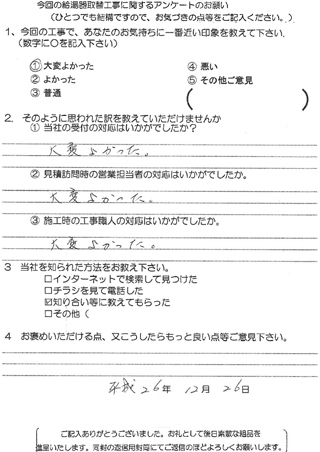 今回の給湯器取替工事に関するアンケートのお願い
(ひとつでも結構ですので、お気づきの点等をご記入ください。)
1、今回の工事で、あなたのお気持ちに一番近い印象を教えて下さい.
(数字に○を記入下さい)
① 大変よかった ④ 悪い
② よかった ⑤ その他ご意見
③ 普通 ( )
2. そのように思われた訳を教えていただけませんか
① 当社の受付の対応はいかがでしたか?
大変よかった。
② 見積訪問時の営業担当者の対応はいかがでしたか。
大変よかった。
③ 施工時の工事職人の対応はいかがでしたか。
大変よかった。
3 当社を知られた方法をお教え下さい。
□インターネットで検索して見つけた
□チラシを見て電話した
☑知り合い等に教えてもらった
□その他 (
4 お褒めいただける点、又こうしたらもっと良い点等ご意見下さい。
平成 26年 12月 26日
ご記入ありがとうございました。お礼として後日素敵な粗品を
進呈いたします。同封の返信用封筒にてご返信のほどよろしくお願いします。